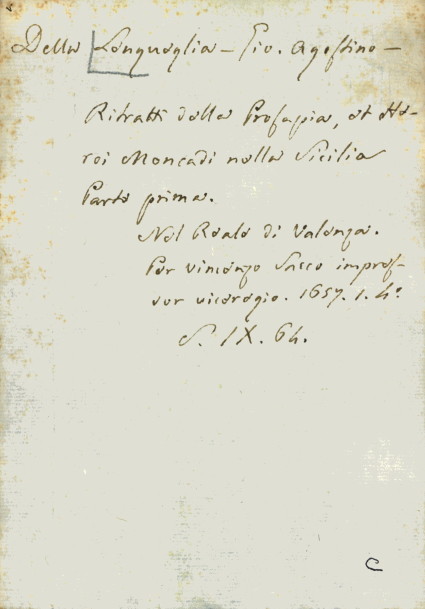 Della Lengueglia - Gio. Agostino -
Ritratti della Prosapia, et He-
roi Moncadi nella Sicilia
Parte prima.
Nel Reale di Valenza.
Per Vincenzo Sacco impres-
sor viceregio. 1657. 1. 4°
S. IX. 64.
C